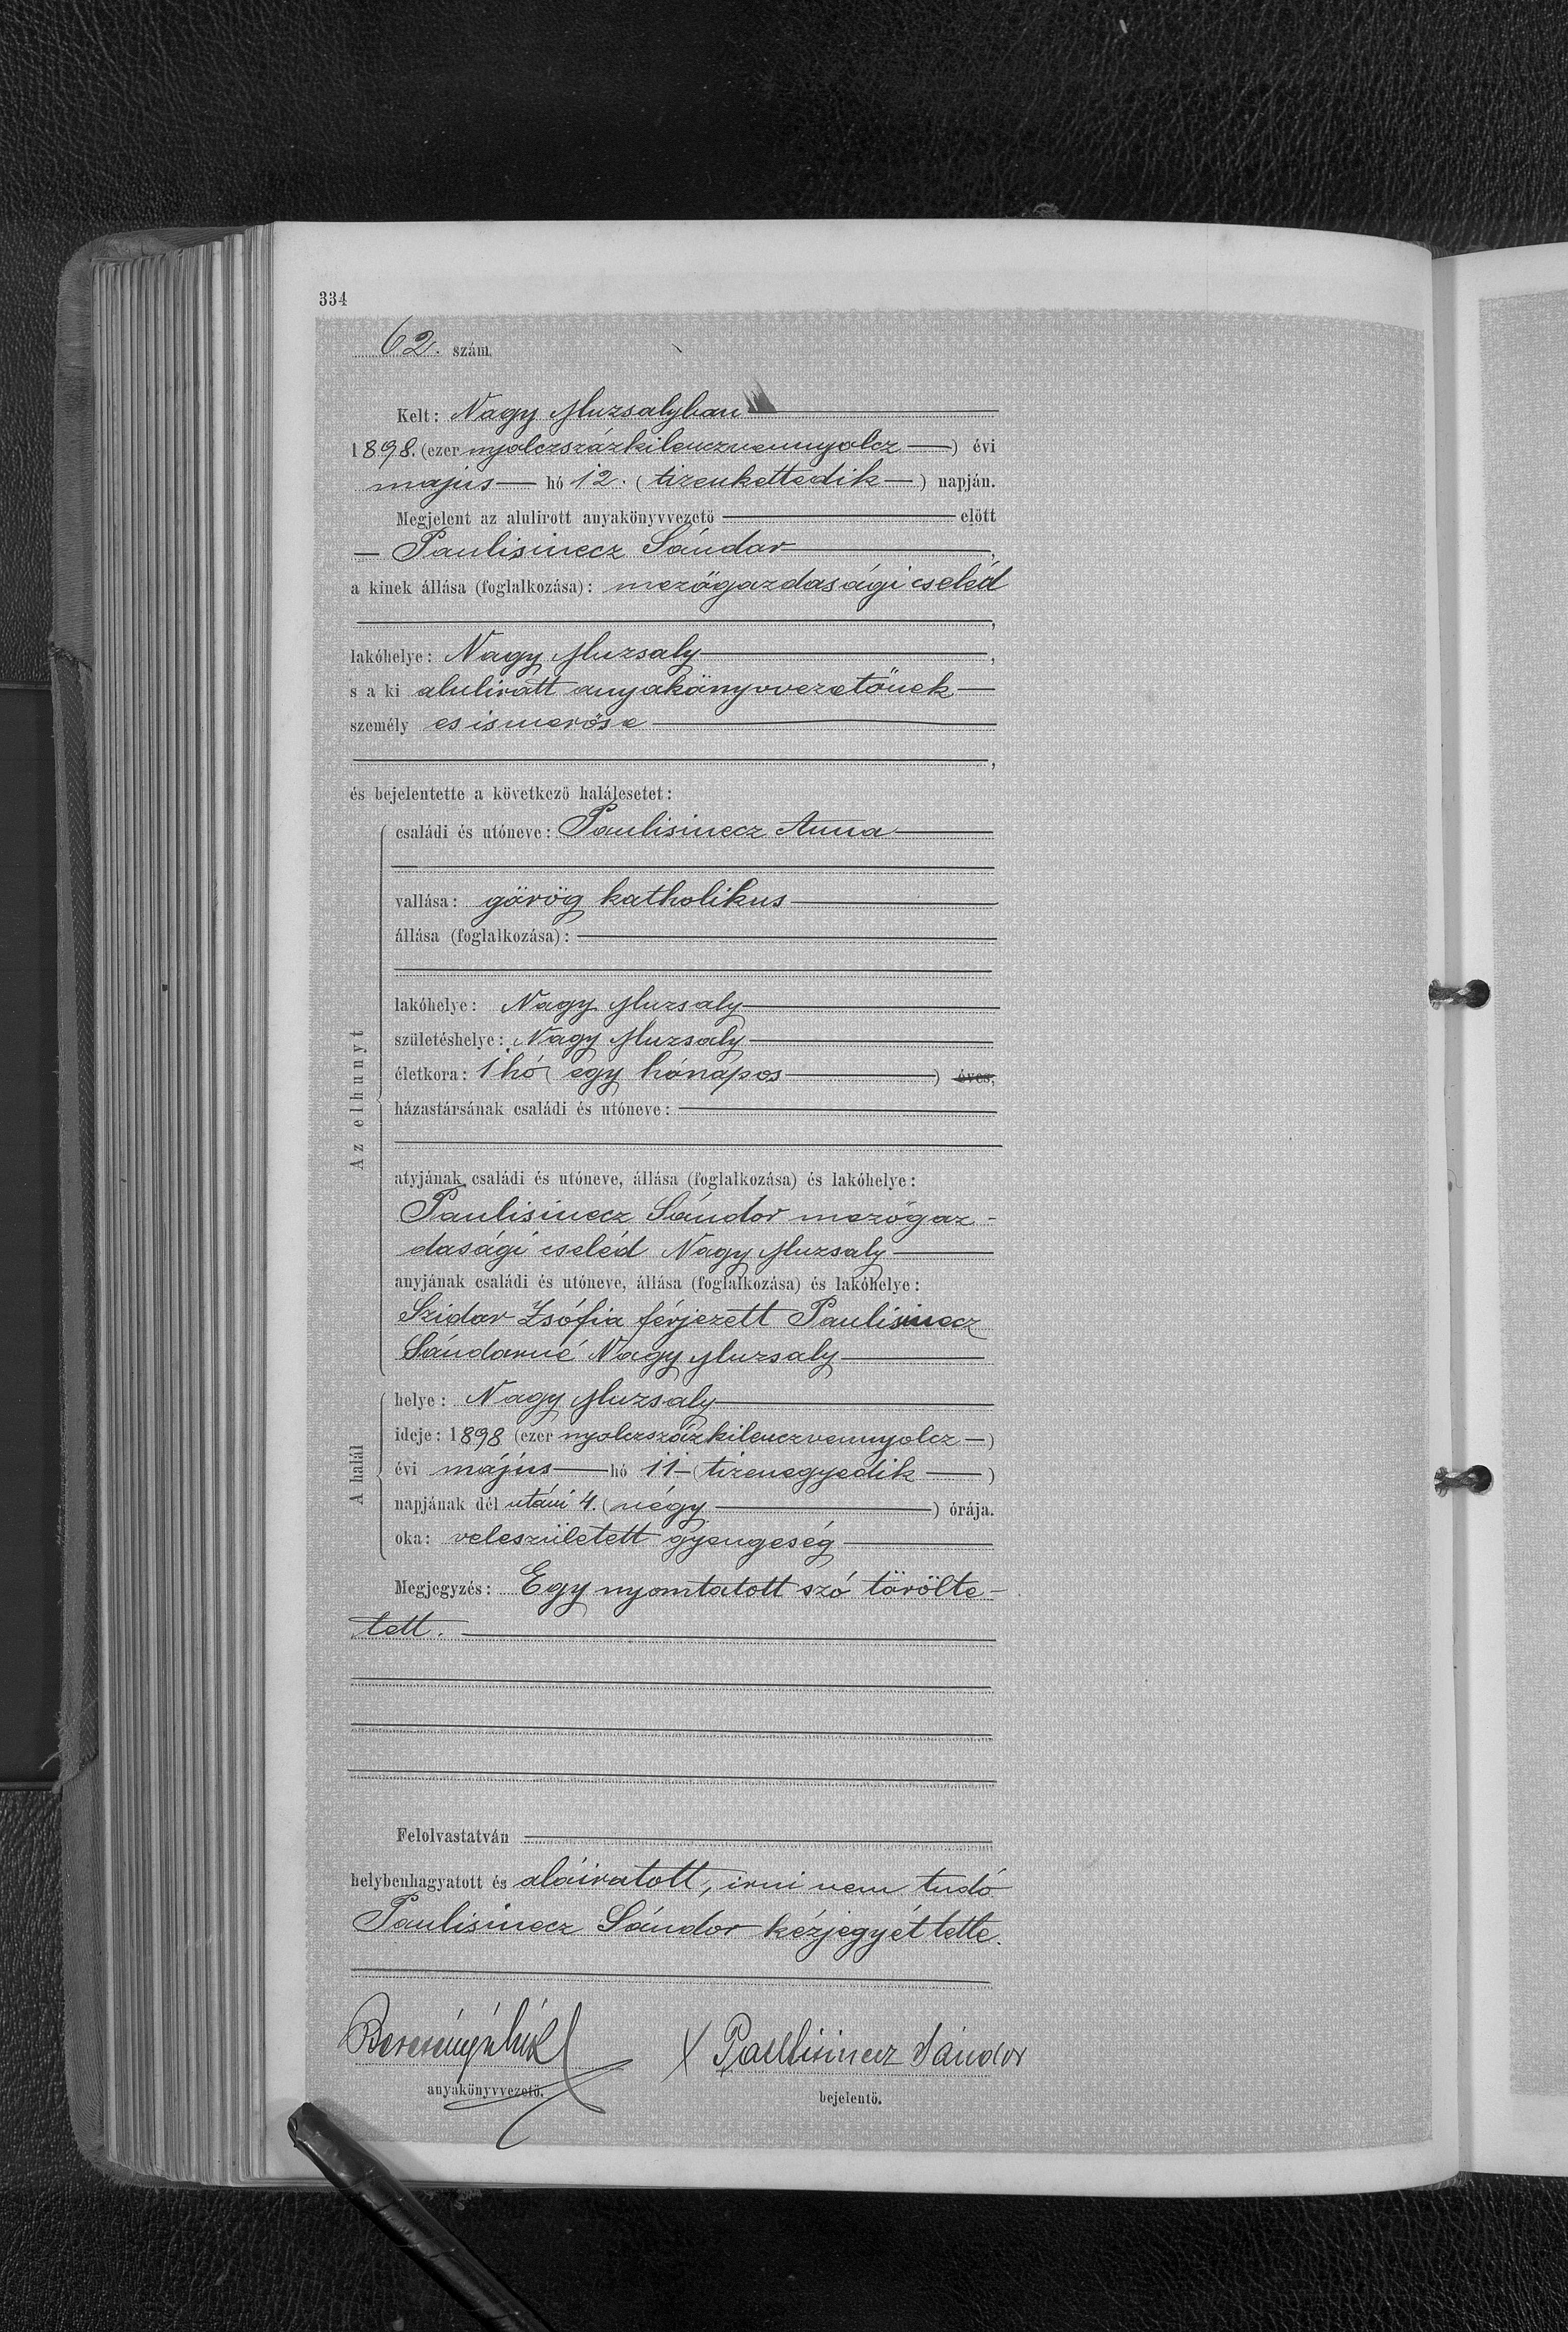 334
62. szám.
Kelt: Nagy Muzsalyban
1898. (ezer nyolczszázkilenczvennyolcz) évi
május hó 12. (tizenkettedik) napján.
Megjelent az alulirott anyakönyvvezető előtt
Paulisinecz Sándor,
a kinek állása (foglalkozása): mezőgazdasági cseléd
,
lakóhelye: Nagy Muzsaly,
s a ki alulirott anyakönyvvezetőnek
személyes ismerőse
,
és bejelentette a következő halálesetet:
Az elhunyt
családi és utóneve: Paulisinecz Anna
vallása: görög katholikus
állása (foglalkozása):
lakóhelye: Nagy Muzsaly
születéshelye: Nagy Muzsaly
életkora: 1 hó (egy hónapos) éves,
házastársának családi és utóneve:
atyjának családi és utóneve, állása (foglalkozása) és lakóhelye:
Paulisinecz Sándor mezőgaz-
dasági cseléd Nagy Muzsaly
anyjának családi és utóneve, állása (foglalkozása) és lakóhelye:
Szidor Zsófia férjezett Paulisinecz
Sándorné Nagy Muzsaly
A halál
helye: Nagy Muzsaly
ideje: 1898 (ezer nyolczszázkilenczvennyolcz)
évi május hó 11 (tizenegyedik)
napjának dél utáni 4. (négy) órája.
oka: veleszületett gyengeség
Megjegyzés: Egy nyomtatott szó törölte-
tett.
Felolvastatván
helybenhagyatott és aláiratott, irni nem tudó
Paulisinecz Sándor kézjegyét tette.
X Paulisinecz Sándor
anyakönyvvezető.
bejelentő.